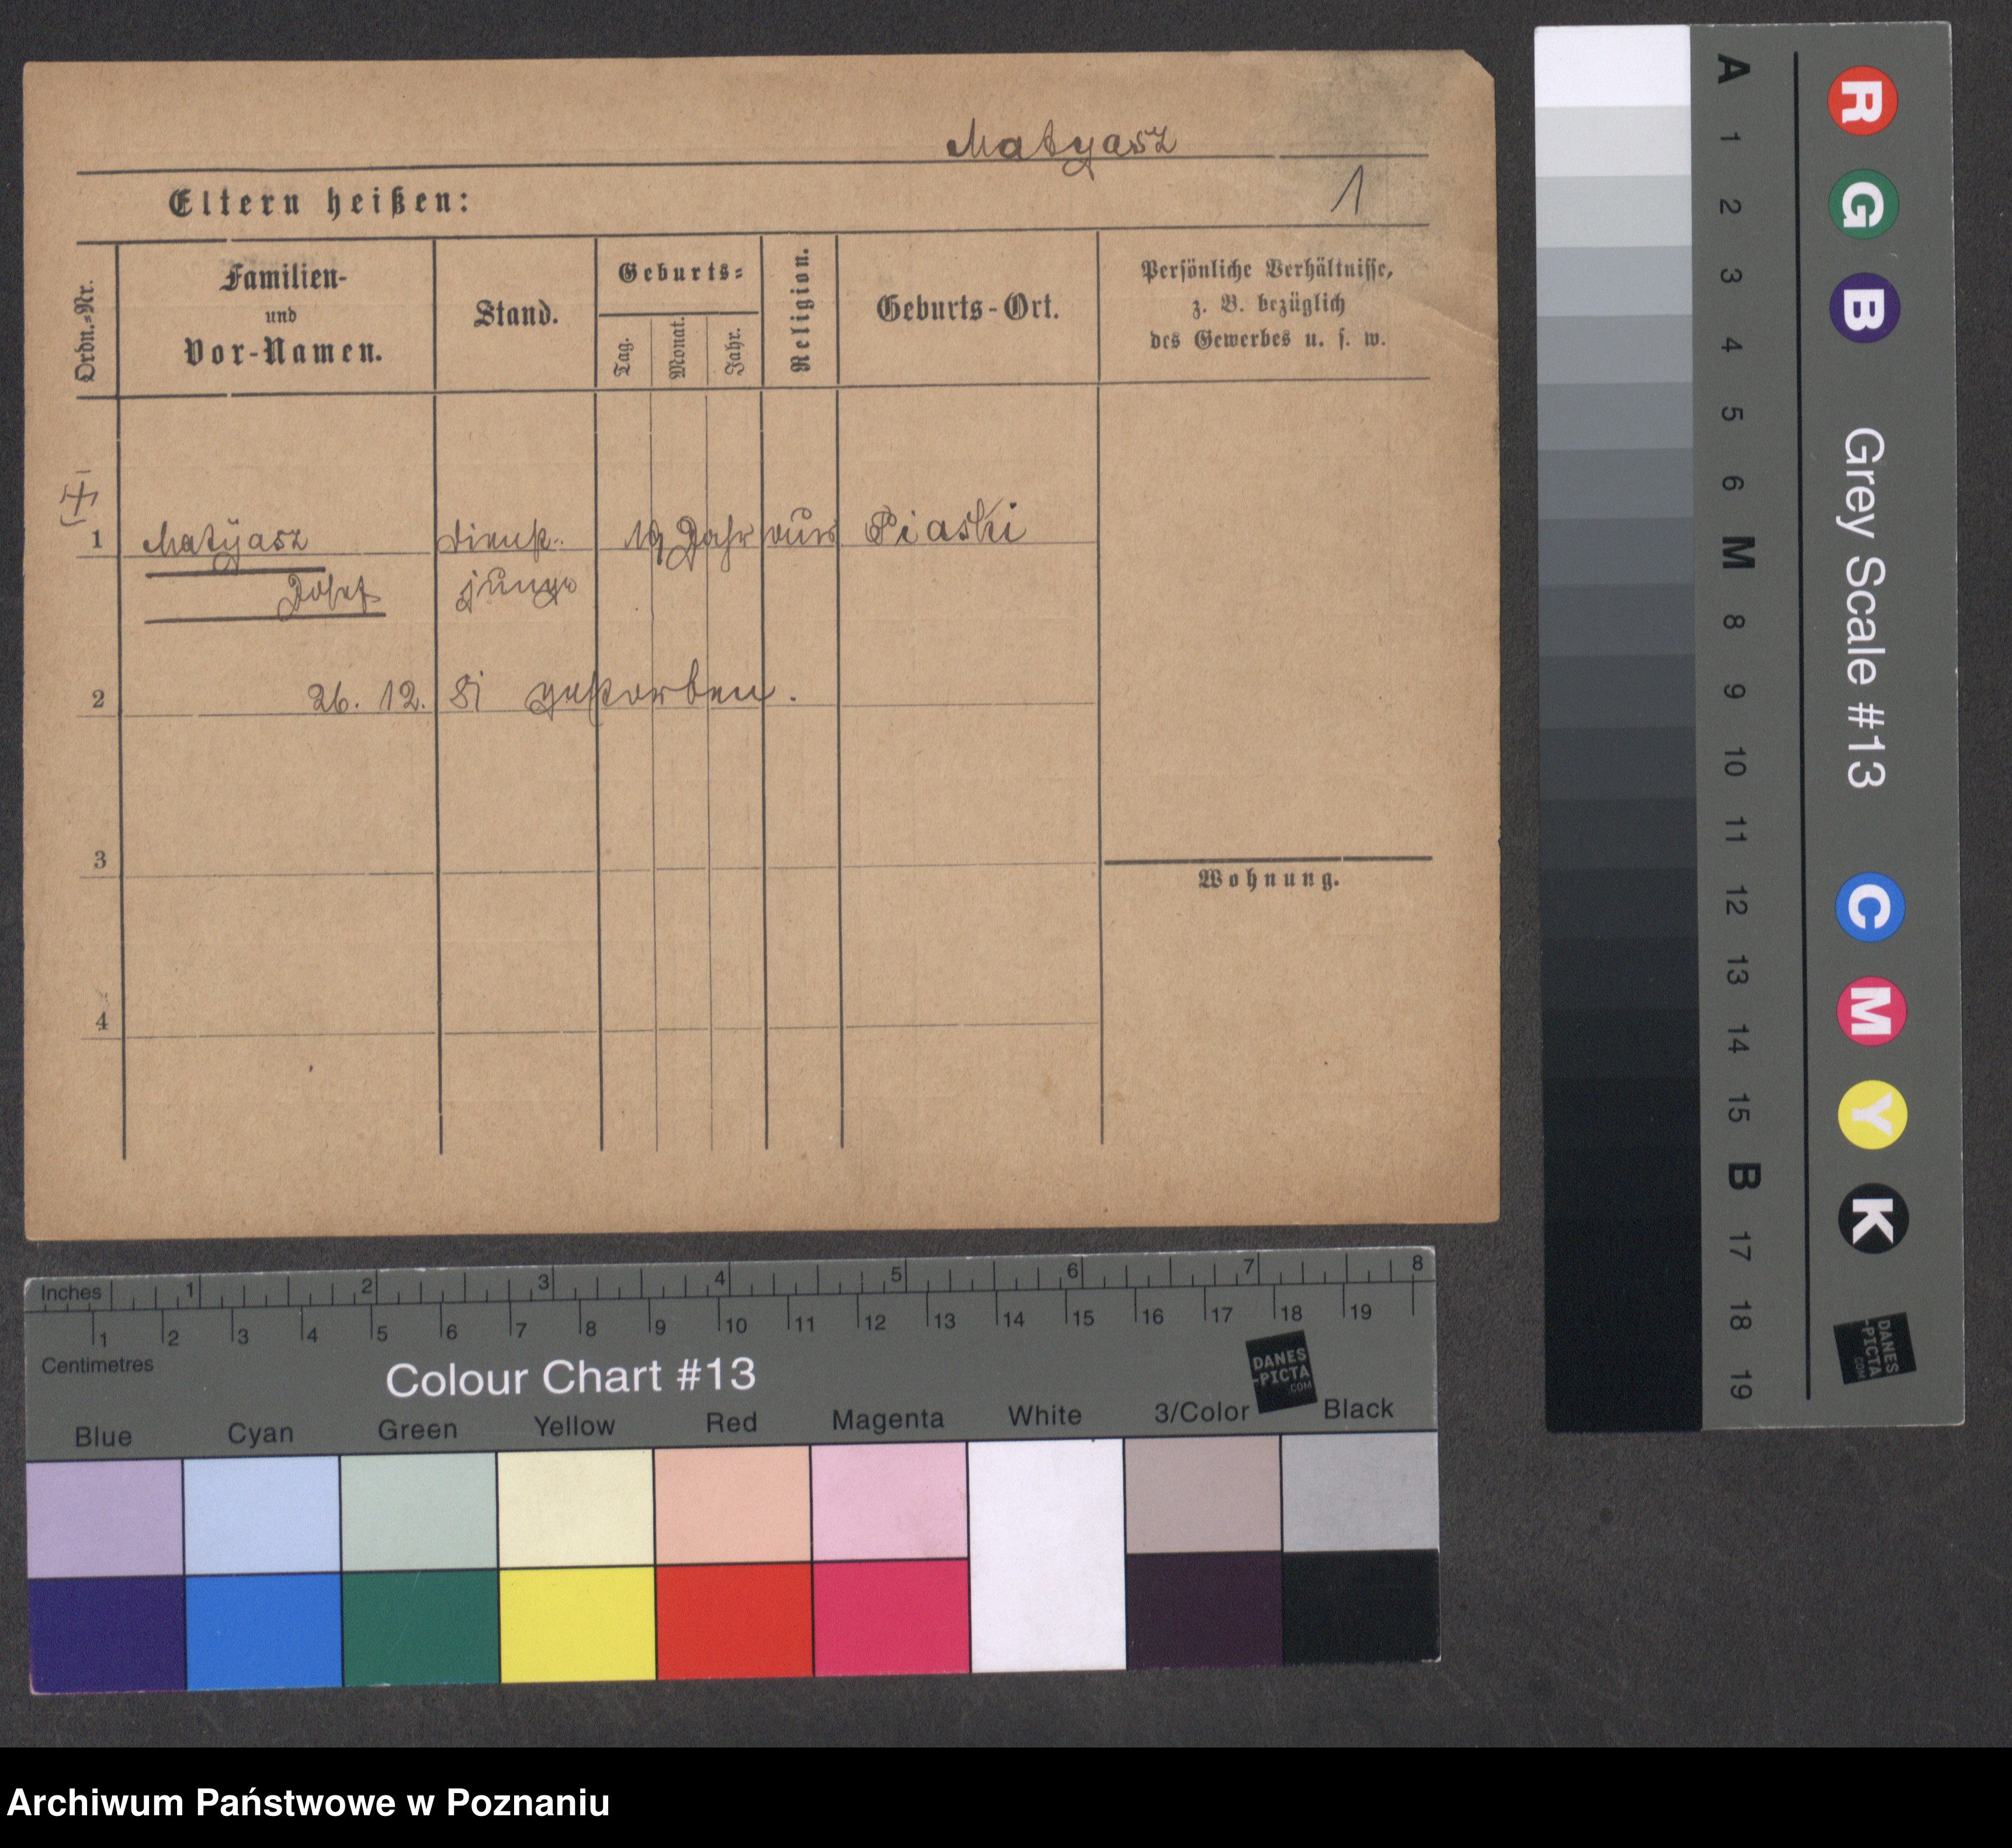 Matyasz
1
Eltern heißen:
Ordn.-Nr.
Familien-
und
Vor-Namen.
Stand.
Geburts-
Tag.
Monat.
Jahr.
Religion.
Geburts-Ort.
Persönliche Verhältnisse,
z. B. bezüglich
des Gewerbes u. s. w.
1 Matyasz Dienst- 19 Jahr Piaski
Josef junge
2 26. 12. 81 gestorben.
3
Wohnung.
4
Inches 1 2 3 4 5 6 7 8
1 2 3 4 5 6 7 8 9 10 11 12 13 14 15 16 17 18 19
Centimetres
Colour Chart #13
DANES
-PICTA
.COM
Blue Cyan Green Yellow Red Magenta White 3/Color Black
A 1 2 3 4 5 6 M 8 9 10 11 12 13 14 15 B 17 18 19
R G B Grey Scale #13 C M Y K
DANES
-PICTA
.COM
Archiwum Państwowe w Poznaniu